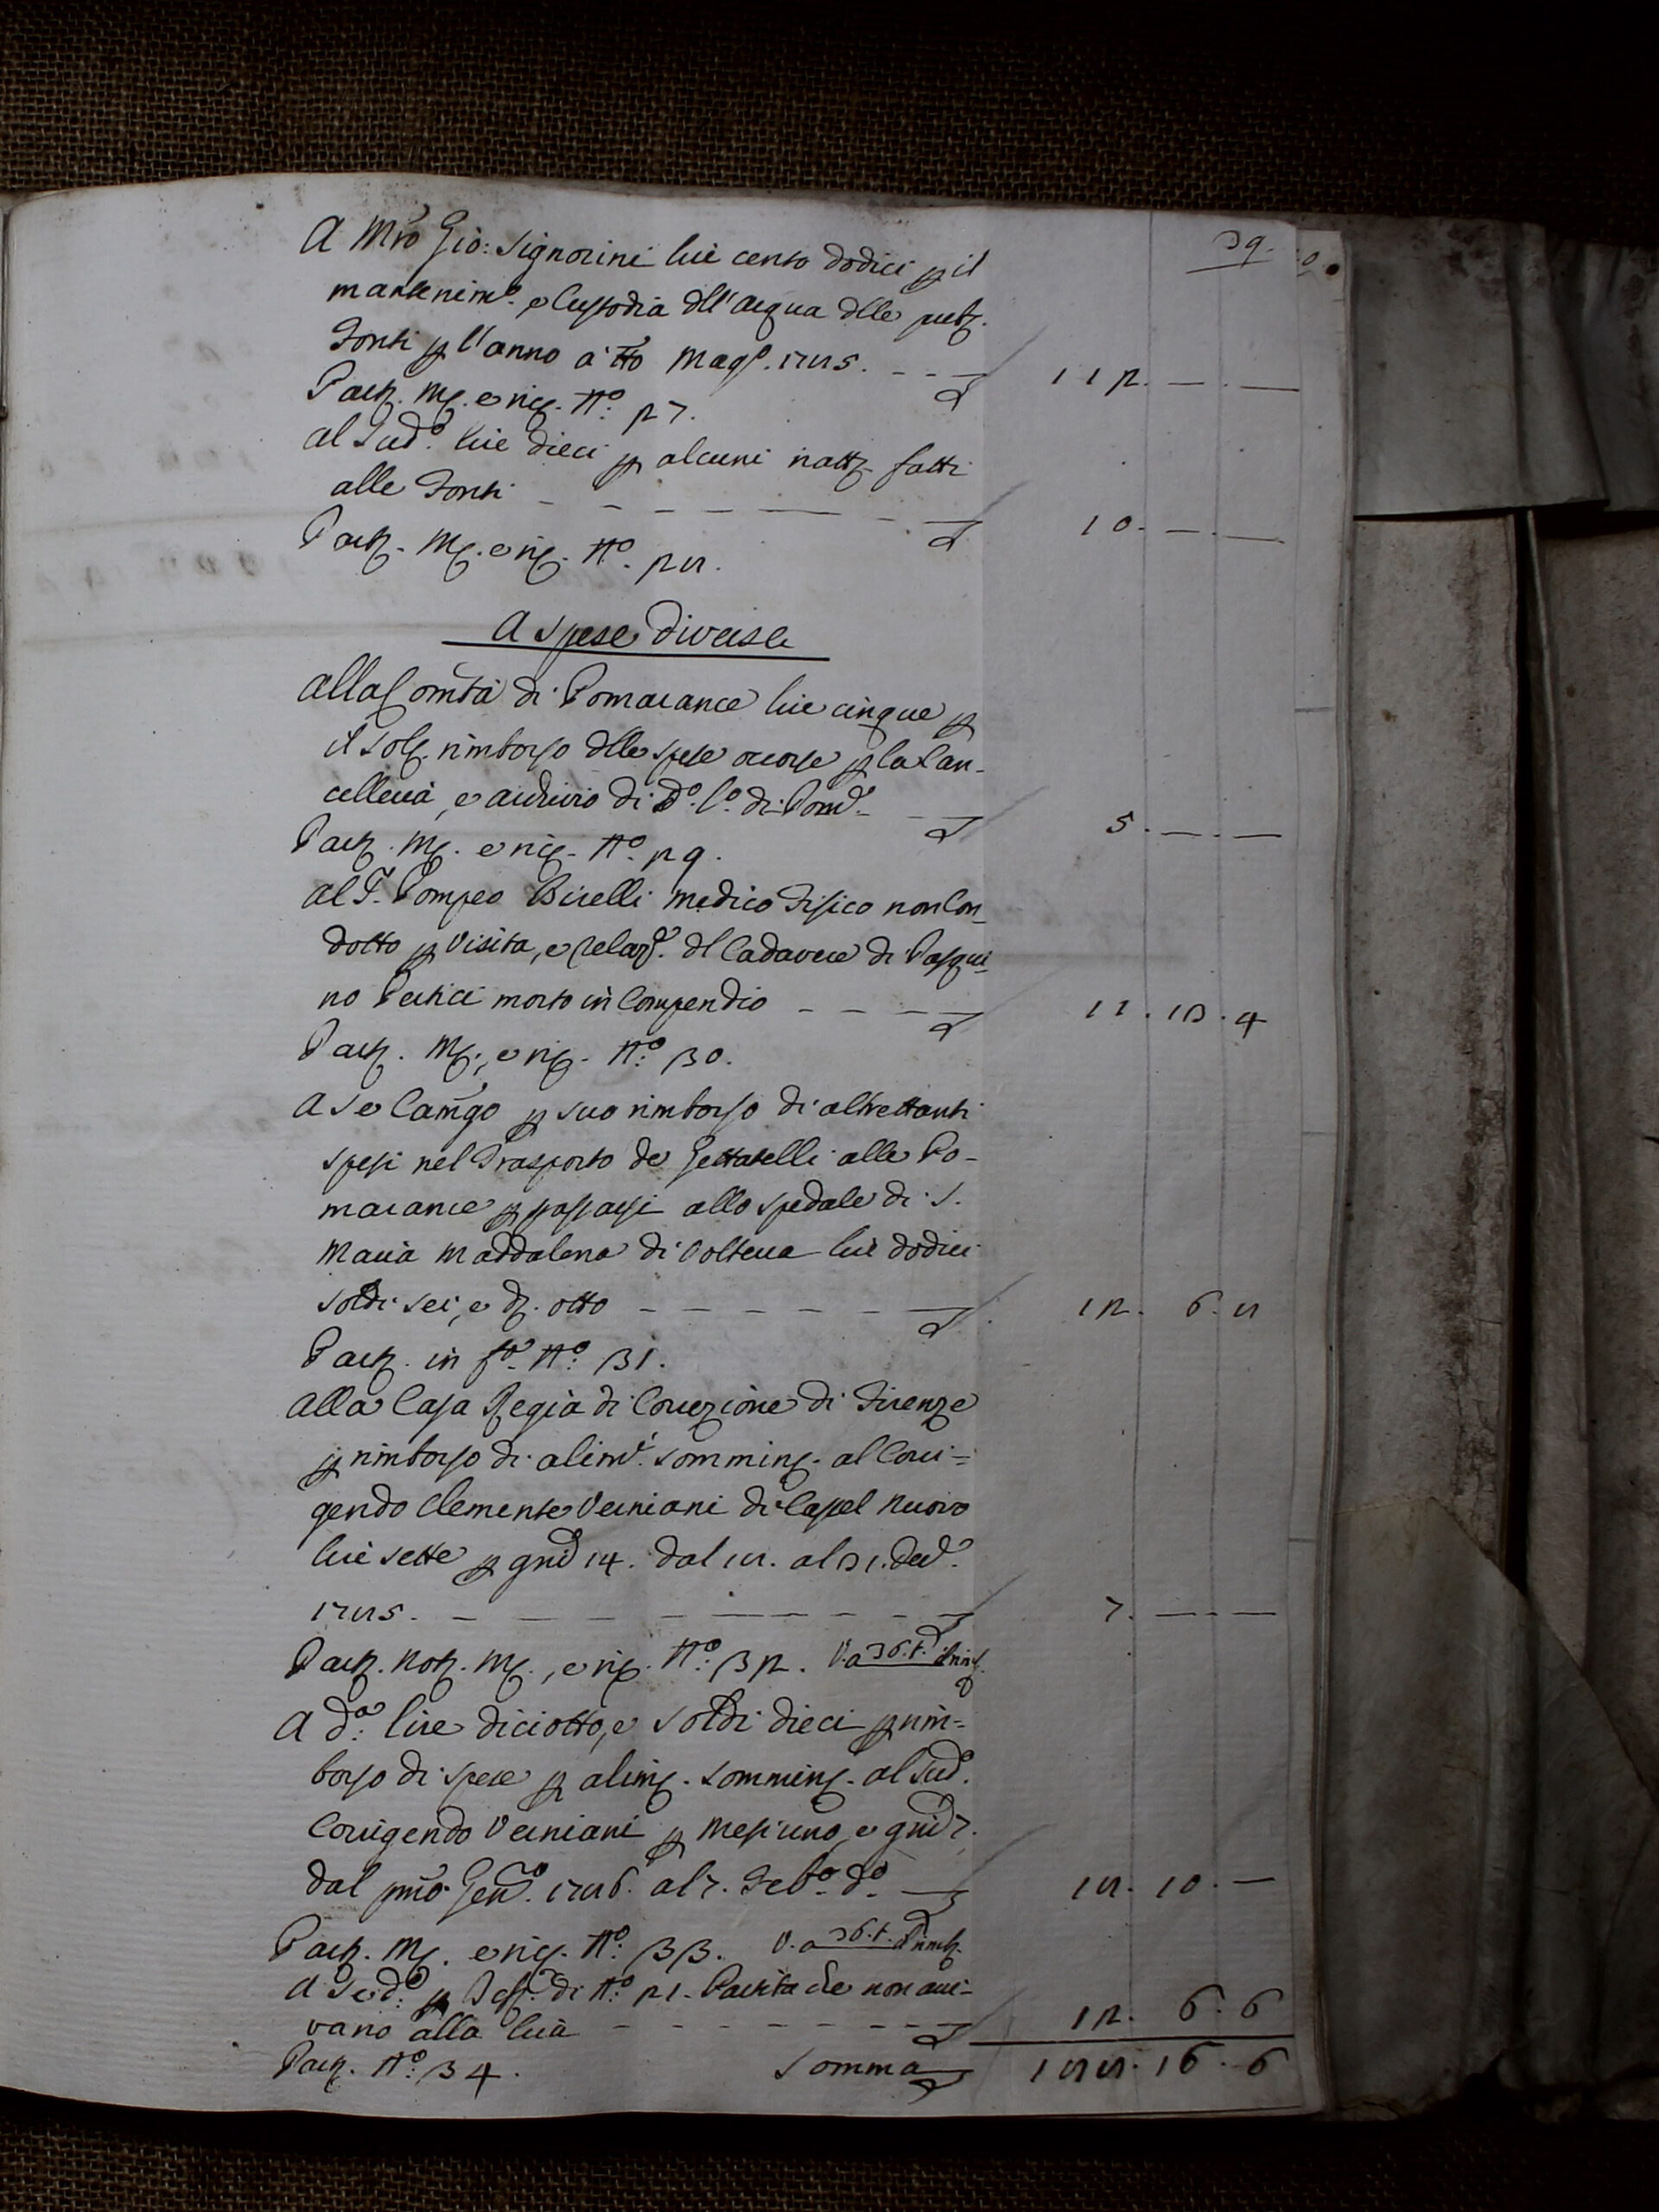 39.
A Mro Gio: Signorini lire cento dodici p il
mantenimo. e Custodia dll'acqua dlle pubb.
Fonti p l'anno a tto Maggo. 1785. 112. — . —
Parta. Mo. e ric. No. 27.
al Sudo. lire dieci p alcuni riatti fatti
alle Fonti 10. — . —
Parta. Mo. e ric. No. 28.
A spese diverse
alla Comtà di Pomarance lire cinque p
il solo. rimborso dlle spese occorse p la Can-
celleria, e archivio di do. Co. di Pome. 5. — . —
Parta. Mo. e ric. No. 29.
al S. Pompeo Bicelli medico Fisico non Con-
dotto p Visita, e relaze. dl Cadavere di Pasqui-
no Pertici morto in Compendio 11. 13. 4
Parta. Mo., e ric. No. 30.
A Se Camgo p suo rimborso di altrettanti
spesi nel Trasporto de Gettatelli alle Po-
marance p passarsi allo spedale di S.
Maria Maddalena di Volterra lire dodici
soldi sei, e d. otto 12. 6. 8
Parta. in fo. No. 31.
Alla Casa Regia di Correzione di Firenze
p rimborso di alimti. sommine. al Corri-
gendo Clemente Verniani di Castel Nuovo
lire sette p gni 14. dal 18. al 31. Dece.
1785. 7. — . —
Parta. Not. Mo., e ric. No. 32. V. a 36. t.
A da. lire diciotto, e soldi dieci p rim-
borso di spese p alime. sommine. al Sudo.
Corrigendo Verniani p Mesi uno, e gni 7.
dal pmo Geno. 1786. al 7. Febo. do. 18. 10. —
Parta. Mo. e ric. No. 33. V. a 36. t.
A Sedo. p di No. 21. Partita che non arri-
vano alla lira 12. 6. 6
Parta. No. 34. Somma 188. 16. 6